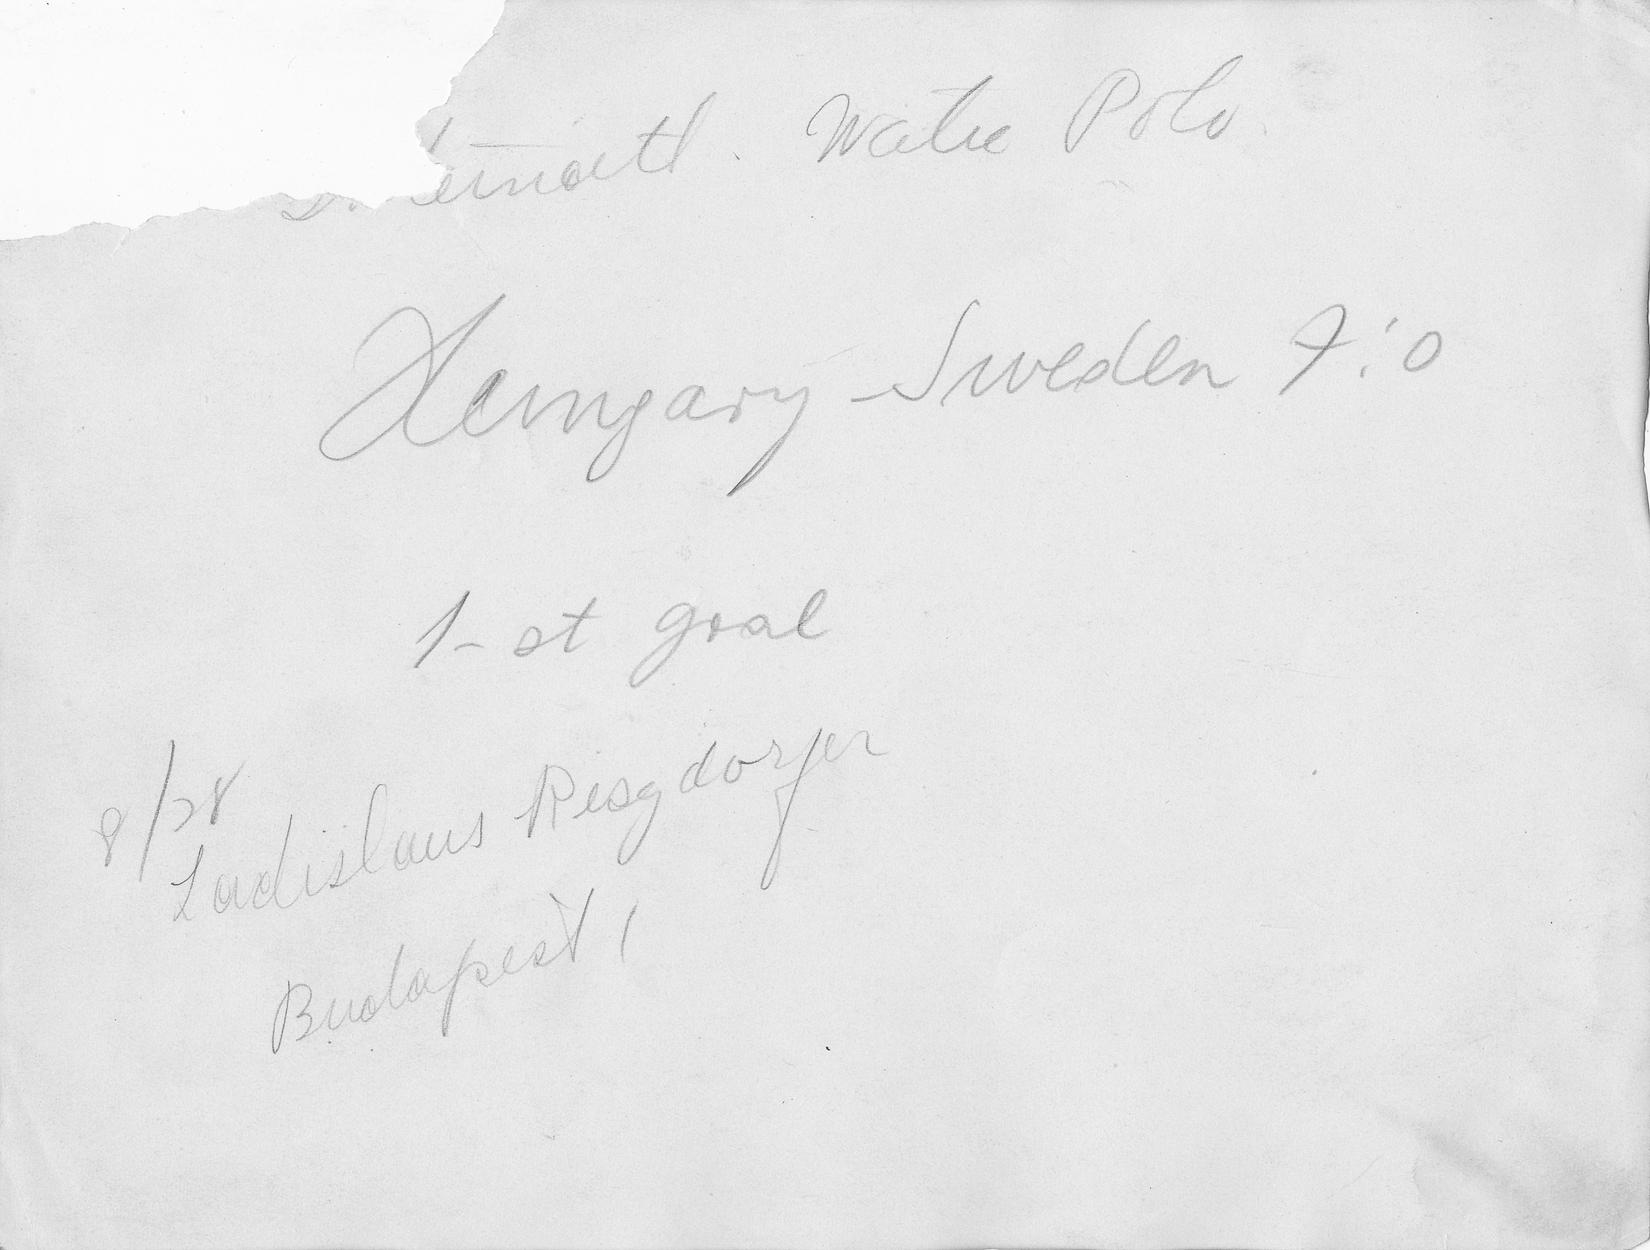 Water Polo
Hungary - Sweden 7:0
1-st goal
8/28
Ladislaus Resgdorfer
Budapest 1